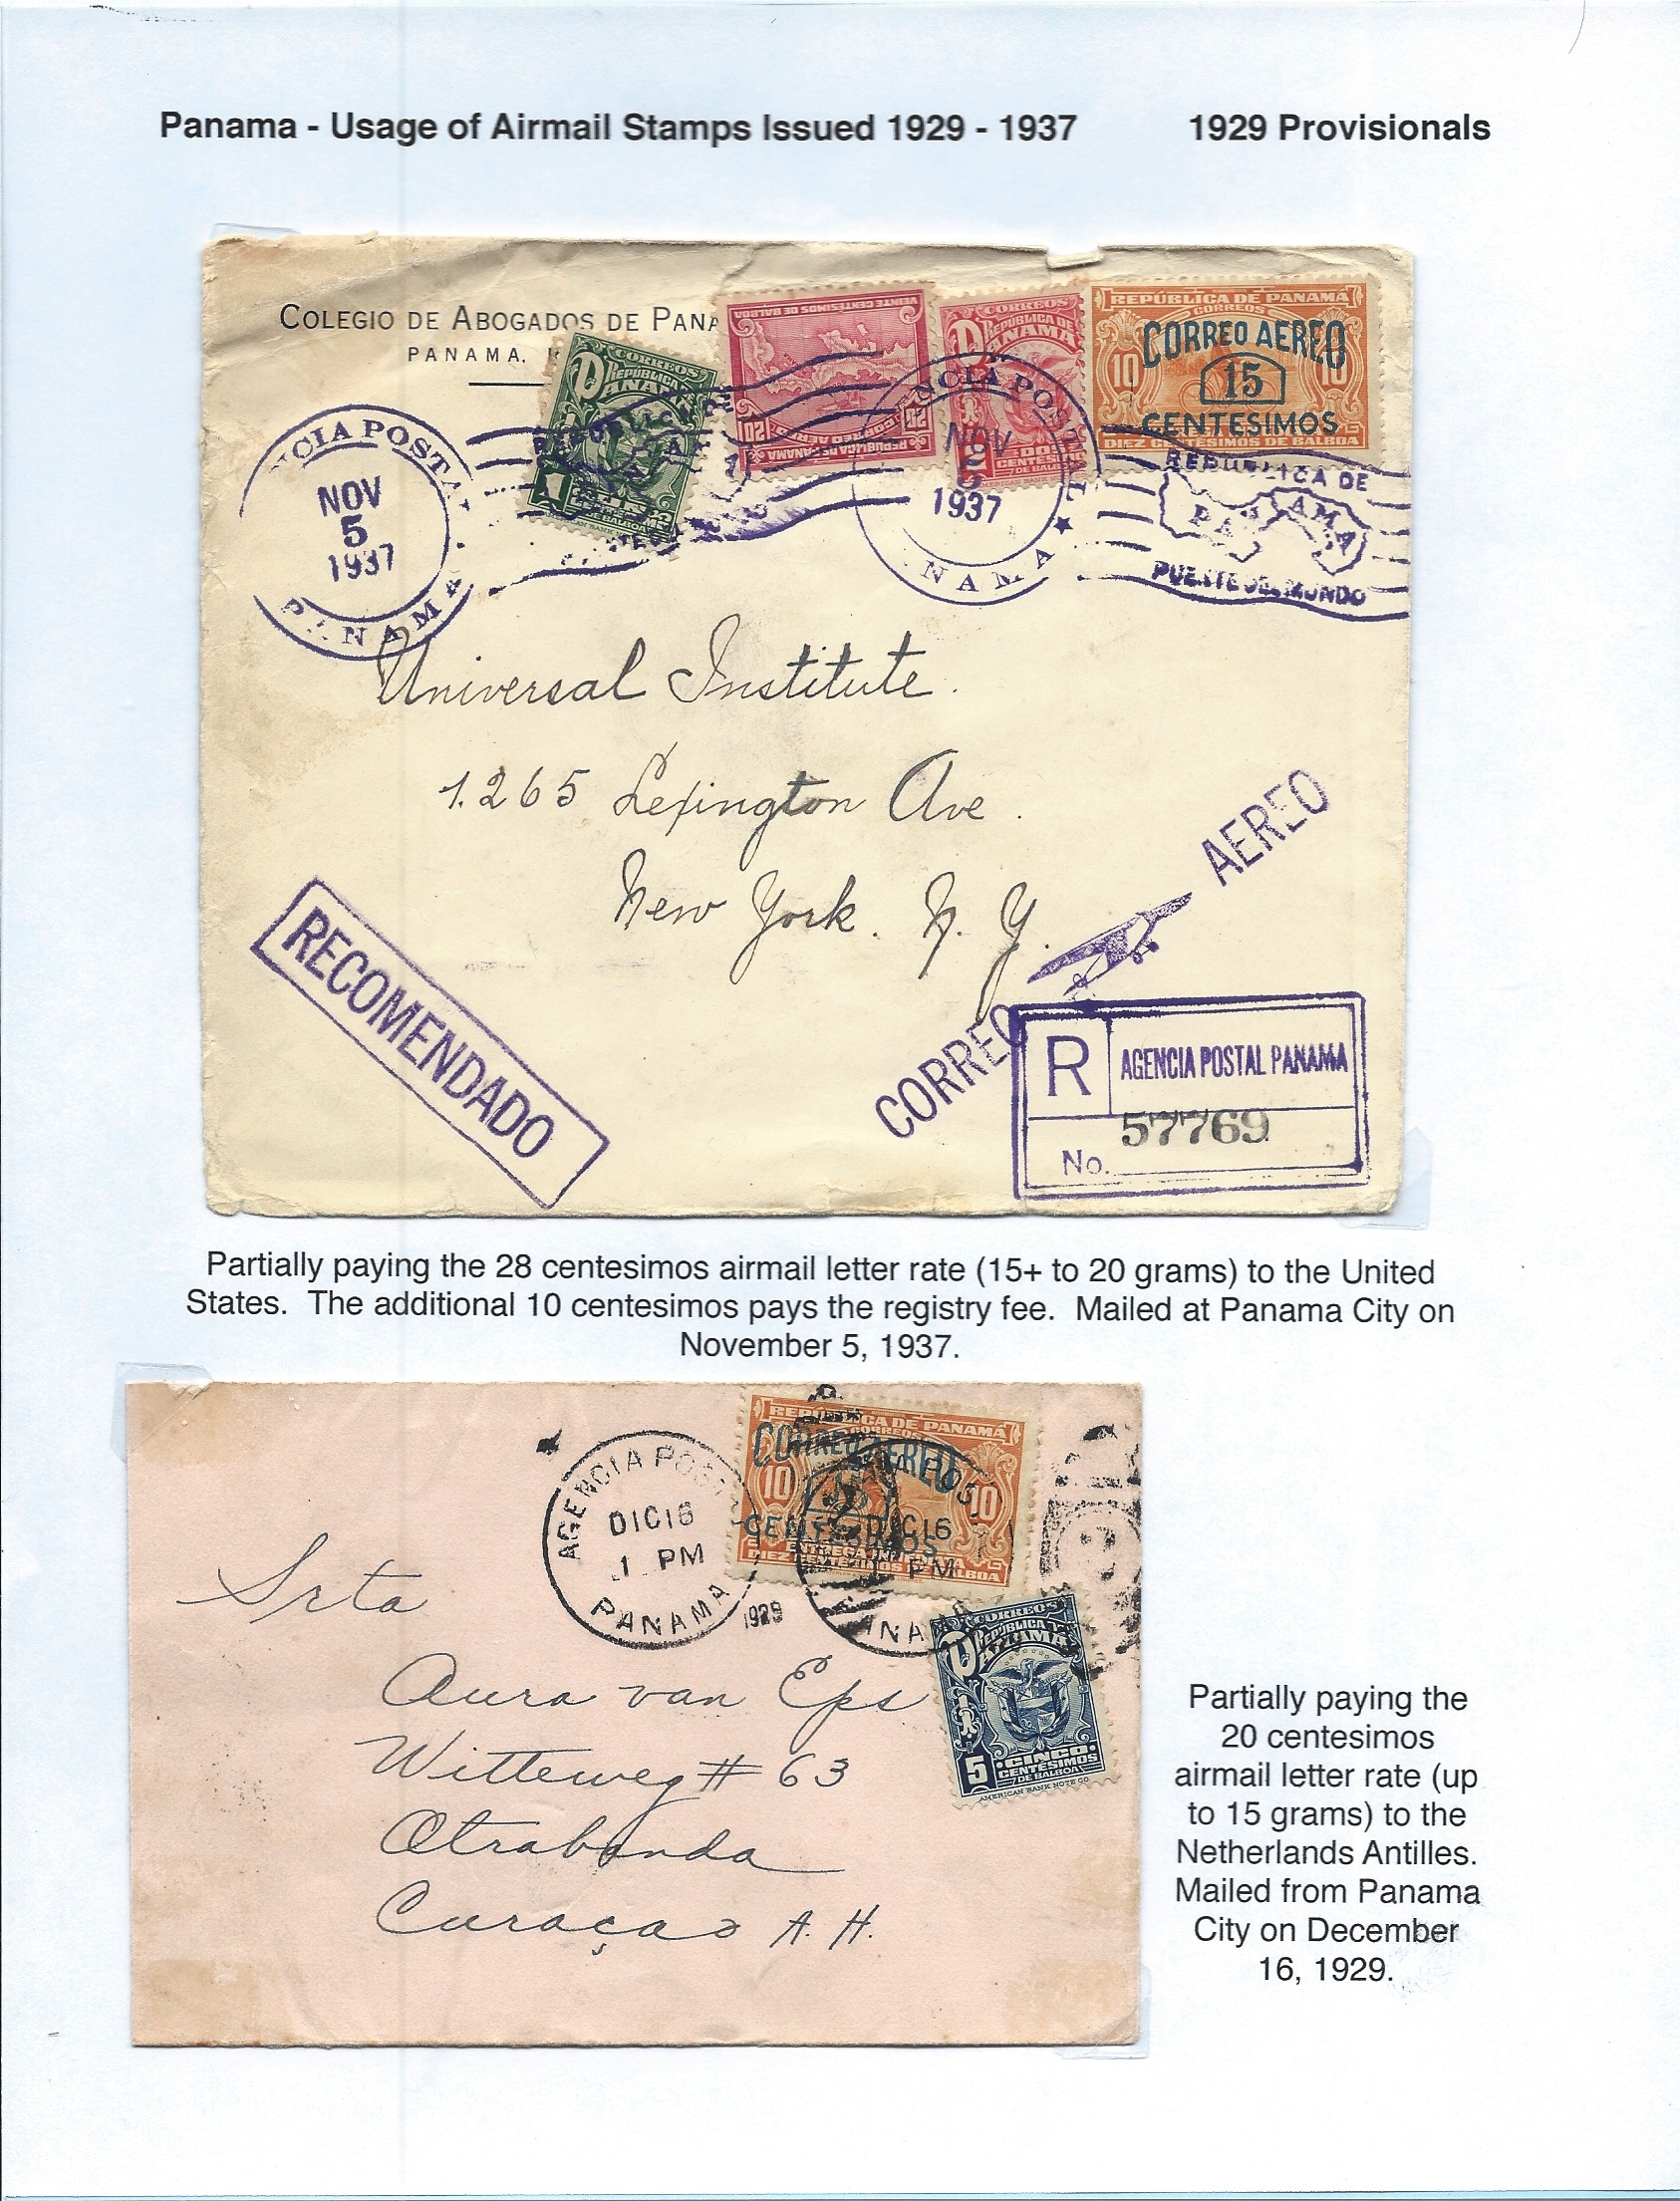 Panama - Usage of Airmail Stamps Issued 1929 - 1937 1929 Provisionals
COLEGIO DE ABOGADOS DE PANA
PANAMA.
CORREOS
REPÚBLICA DE
PANAMA
1
AMERICAN BANK
VEINTE CENTESIMOS DE BALBOA
20 CORREO AEREO 20
REPUBLICA DE PANAMA
CORREOS
REPÚBLICA DE
PANAMA
2
DOS
CENTESIMOS
DE BALBOA
AMERICAN BANK
REPÚBLICA DE PANAMÁ
CORREOS
CORREO AEREO
10 15 10
CENTESIMOS
DIEZ CENTÉSIMOS DE BALBOA
NCIA POSTA
NOV
5
1937
PANAMA
REPUBLICA DE
PANAMA
NCIA POSTAL
NOV
5
1937
NAMA
REPUBLICA DE
PANAMA
PUENTE DEL MUNDO
Universal Institute.
1265 Lexington Ave.
New York. N. Y.
RECOMENDADO
CORREO AEREO
R AGENCIA POSTAL PANAMA
No. 57769
Partially paying the 28 centesimos airmail letter rate (15+ to 20 grams) to the United
States. The additional 10 centesimos pays the registry fee. Mailed at Panama City on
November 5, 1937.
AGENCIA POST
DIC 16
1 PM
PANAMA
1929
REPÚBLICA DE PANAMÁ
CORREOS
CORREO AEREO
10 10
CENTESIMOS
DIC 16
PM
CORREOS
REPÚBLICA DE
PANAMA
5 CINCO
CENTÉSIMOS
DE BALBOA
AMERICAN BANK NOTE CO
Srta
Aura van Eps
Witteweg # 63
Otrabanda
Curaçao A. H.
Partially paying the
20 centesimos
airmail letter rate (up
to 15 grams) to the
Netherlands Antilles.
Mailed from Panama
City on December
16, 1929.